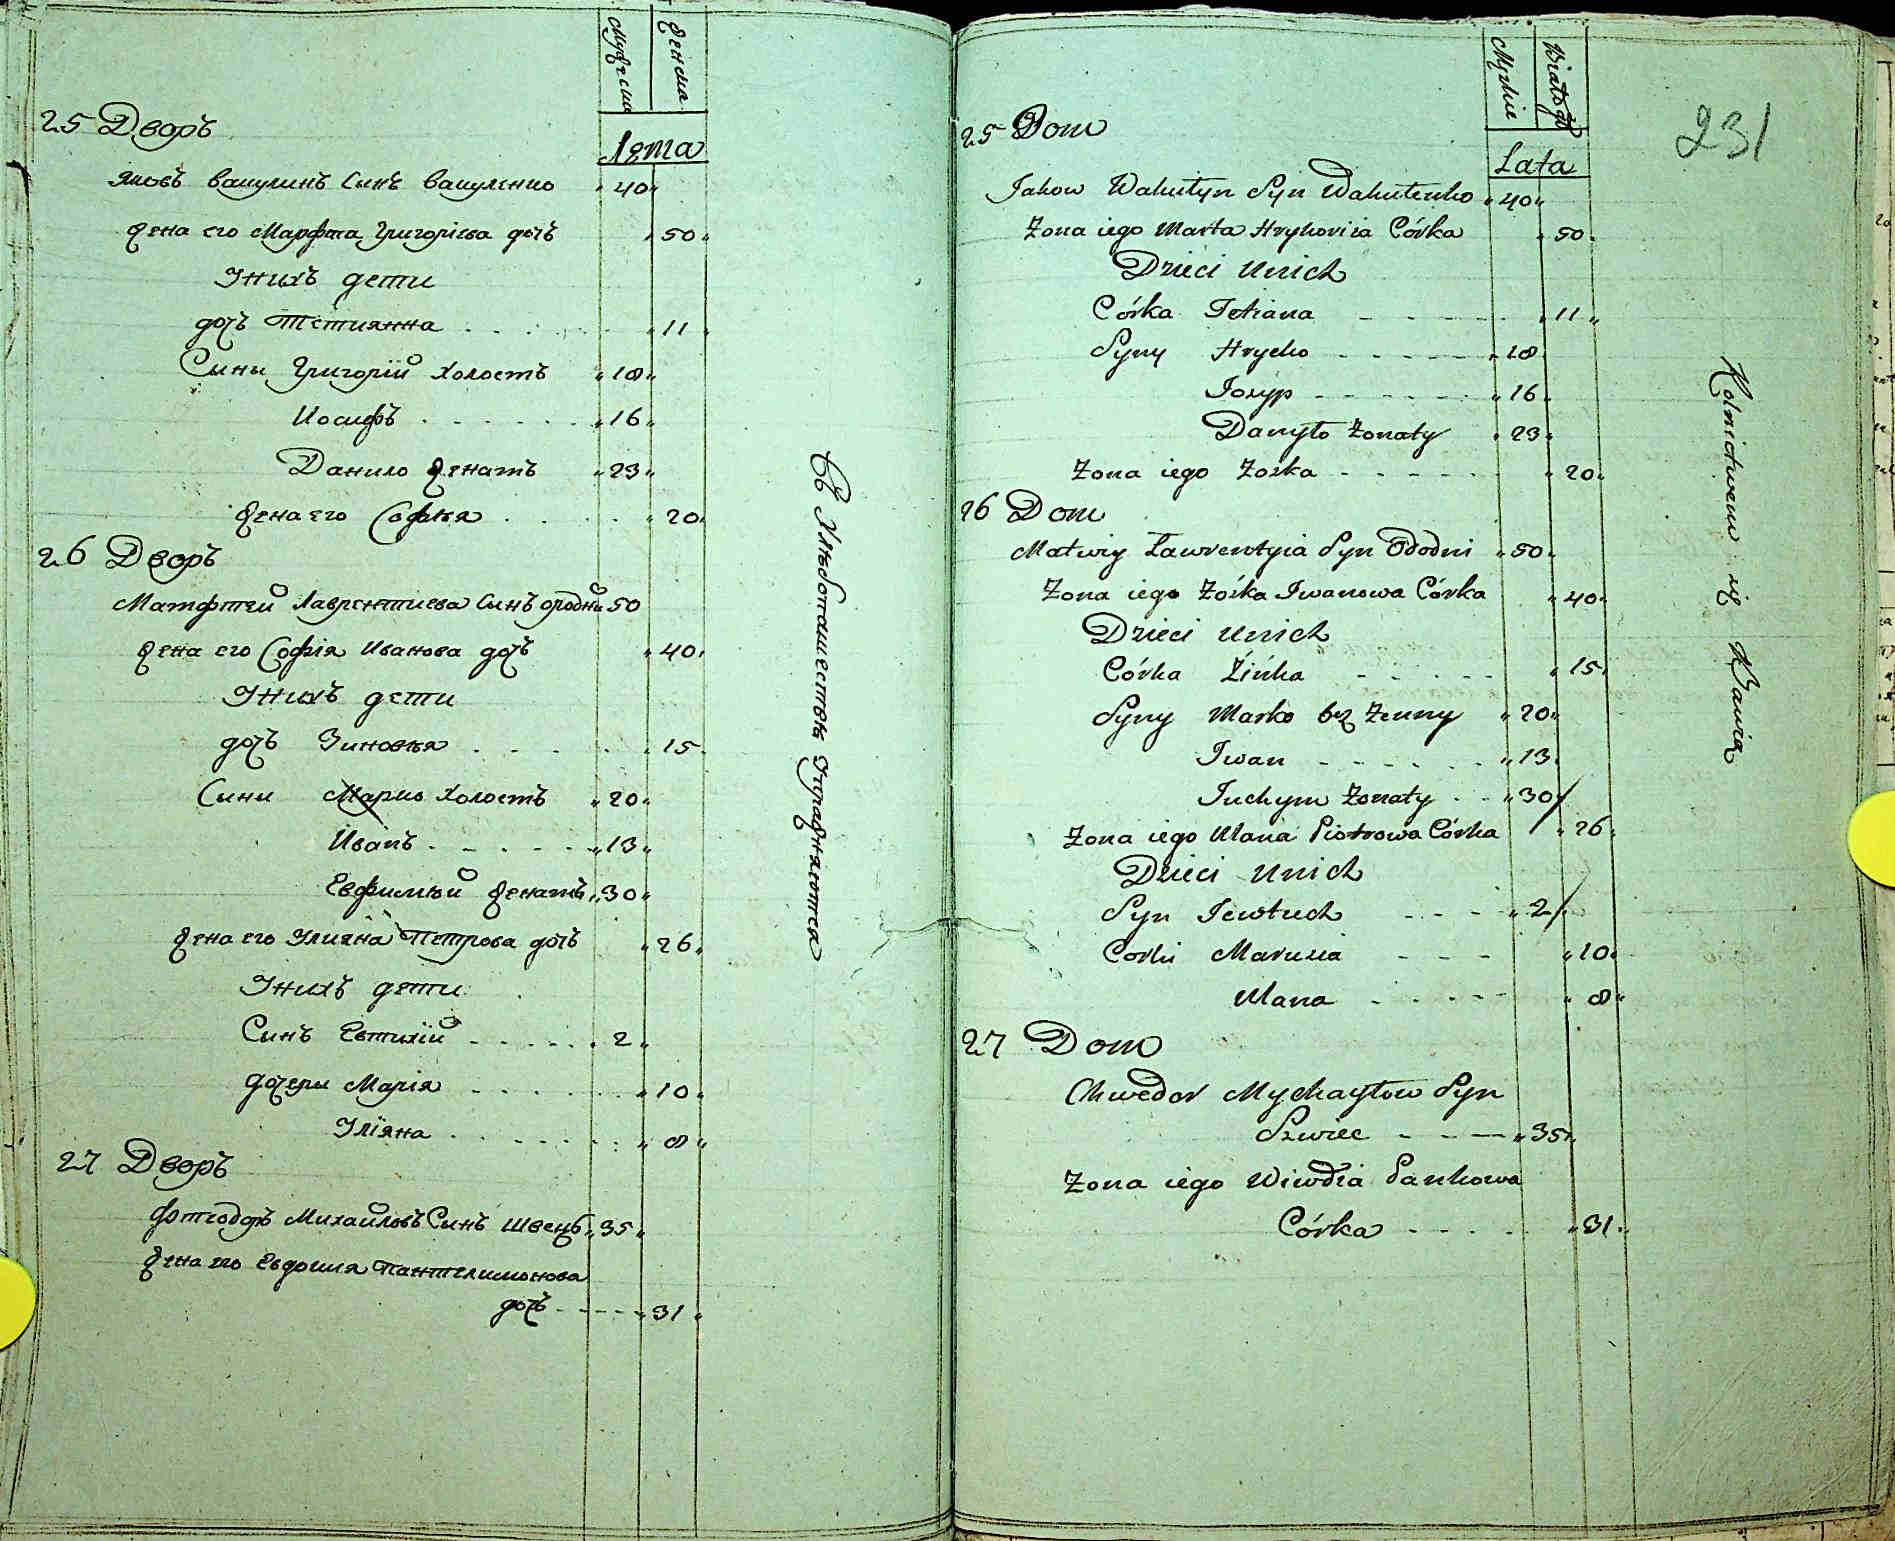 мужеска
женска
Лета
25 Дворъ
Яковъ Вакулинъ Сынъ Вакуленко "40"
жена его Марфта Григоріева дочь "50"
У нихъ дети
дочь Тетиянна "11"
Сыны Григорій холостъ "18"
Иосифъ "16"
Данило женатъ "23"
жена его Софья "20"
26 Дворъ
Матфтей Лаврентиева Сынъ 50
жена его Софія Иванова дочь "40"
У нихъ дети
дочь Зиновья "15"
Сыни Марко холостъ "20"
Иванъ "13"
Евфимъй женатъ "30"
жена его Улияна Петрова дочь "26"
У нихъ дети
Синъ Евтихій "2"
дочери Марія "10"
Уліяна "8"
27 Дворъ
Фтеодоръ Михайловъ Синъ Швецъ "35"
жена его Евдокия Пантелимонова
дочь "31"
Съ Хлѣбопашествъ Упражняются
Męzkie
Białogł
Lata
231
25 Dom
Jakow Wakułyn Syn Wakulenko "40"
Zona iego Marta Hryhoriia Córka "50"
Dzieci Unich
Córka Tetiana "11"
Syny Hryćko "18"
Iozyp "16"
Danyło Zonaty "23"
Zona iego Zoska "20"
26 Dom
Matwiy Ławrentyia Syn Ododni "50"
Zona iego Zośka Iwanowa Córka "40"
Dzieci Unich
Córka Źińka "15"
Syny Marko bez Zenny "20"
Iwan "13"
Iuchym Zonaty "30"
Zona iego Ulana Piotrowa Córka "26"
Dzieci Unich
Syn Iewtuch "2"
Corki Marusia "10"
Ulana "8"
27 Dom
Chwedor Mychayłow Syn
Szwiec "35"
Zona iego Wiwdia Pankowa
Córka "31"
Rolnictwem się Bawią